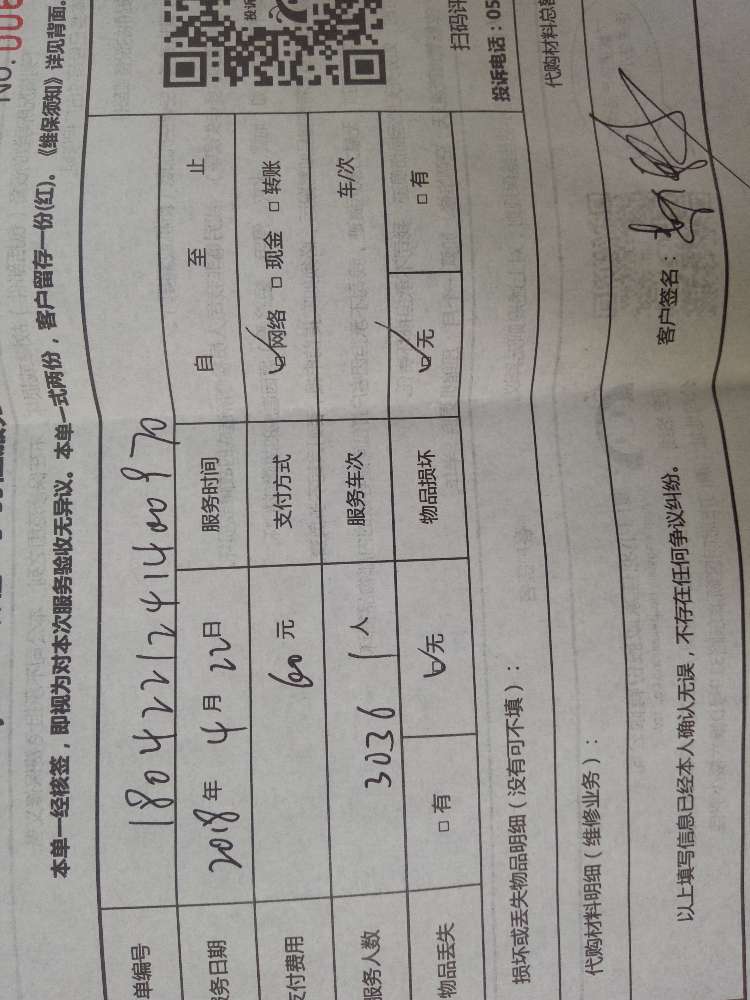 NO.006
本单一经核签，即视为对本次服务验收无异议。本单一式两份，客户留存一份(红)。《维保须知》详见背面。
单编号 18042212414400970
务日期 2018年4月22日 服务时间 自 至 止
付费用 60元 支付方式 网络 现金 转账
服务人数 3036 1人 服务车次 车/次
物品丢失 有 无 物品损坏 无 有
损坏或丢失物品明细（没有可不填）：
代购材料明细（维修业务）：
以上填写信息已经本人确认无误，不存在任何争议纠纷。
客户签名：
投诉
扫码评
投诉电话：05
代购材料总